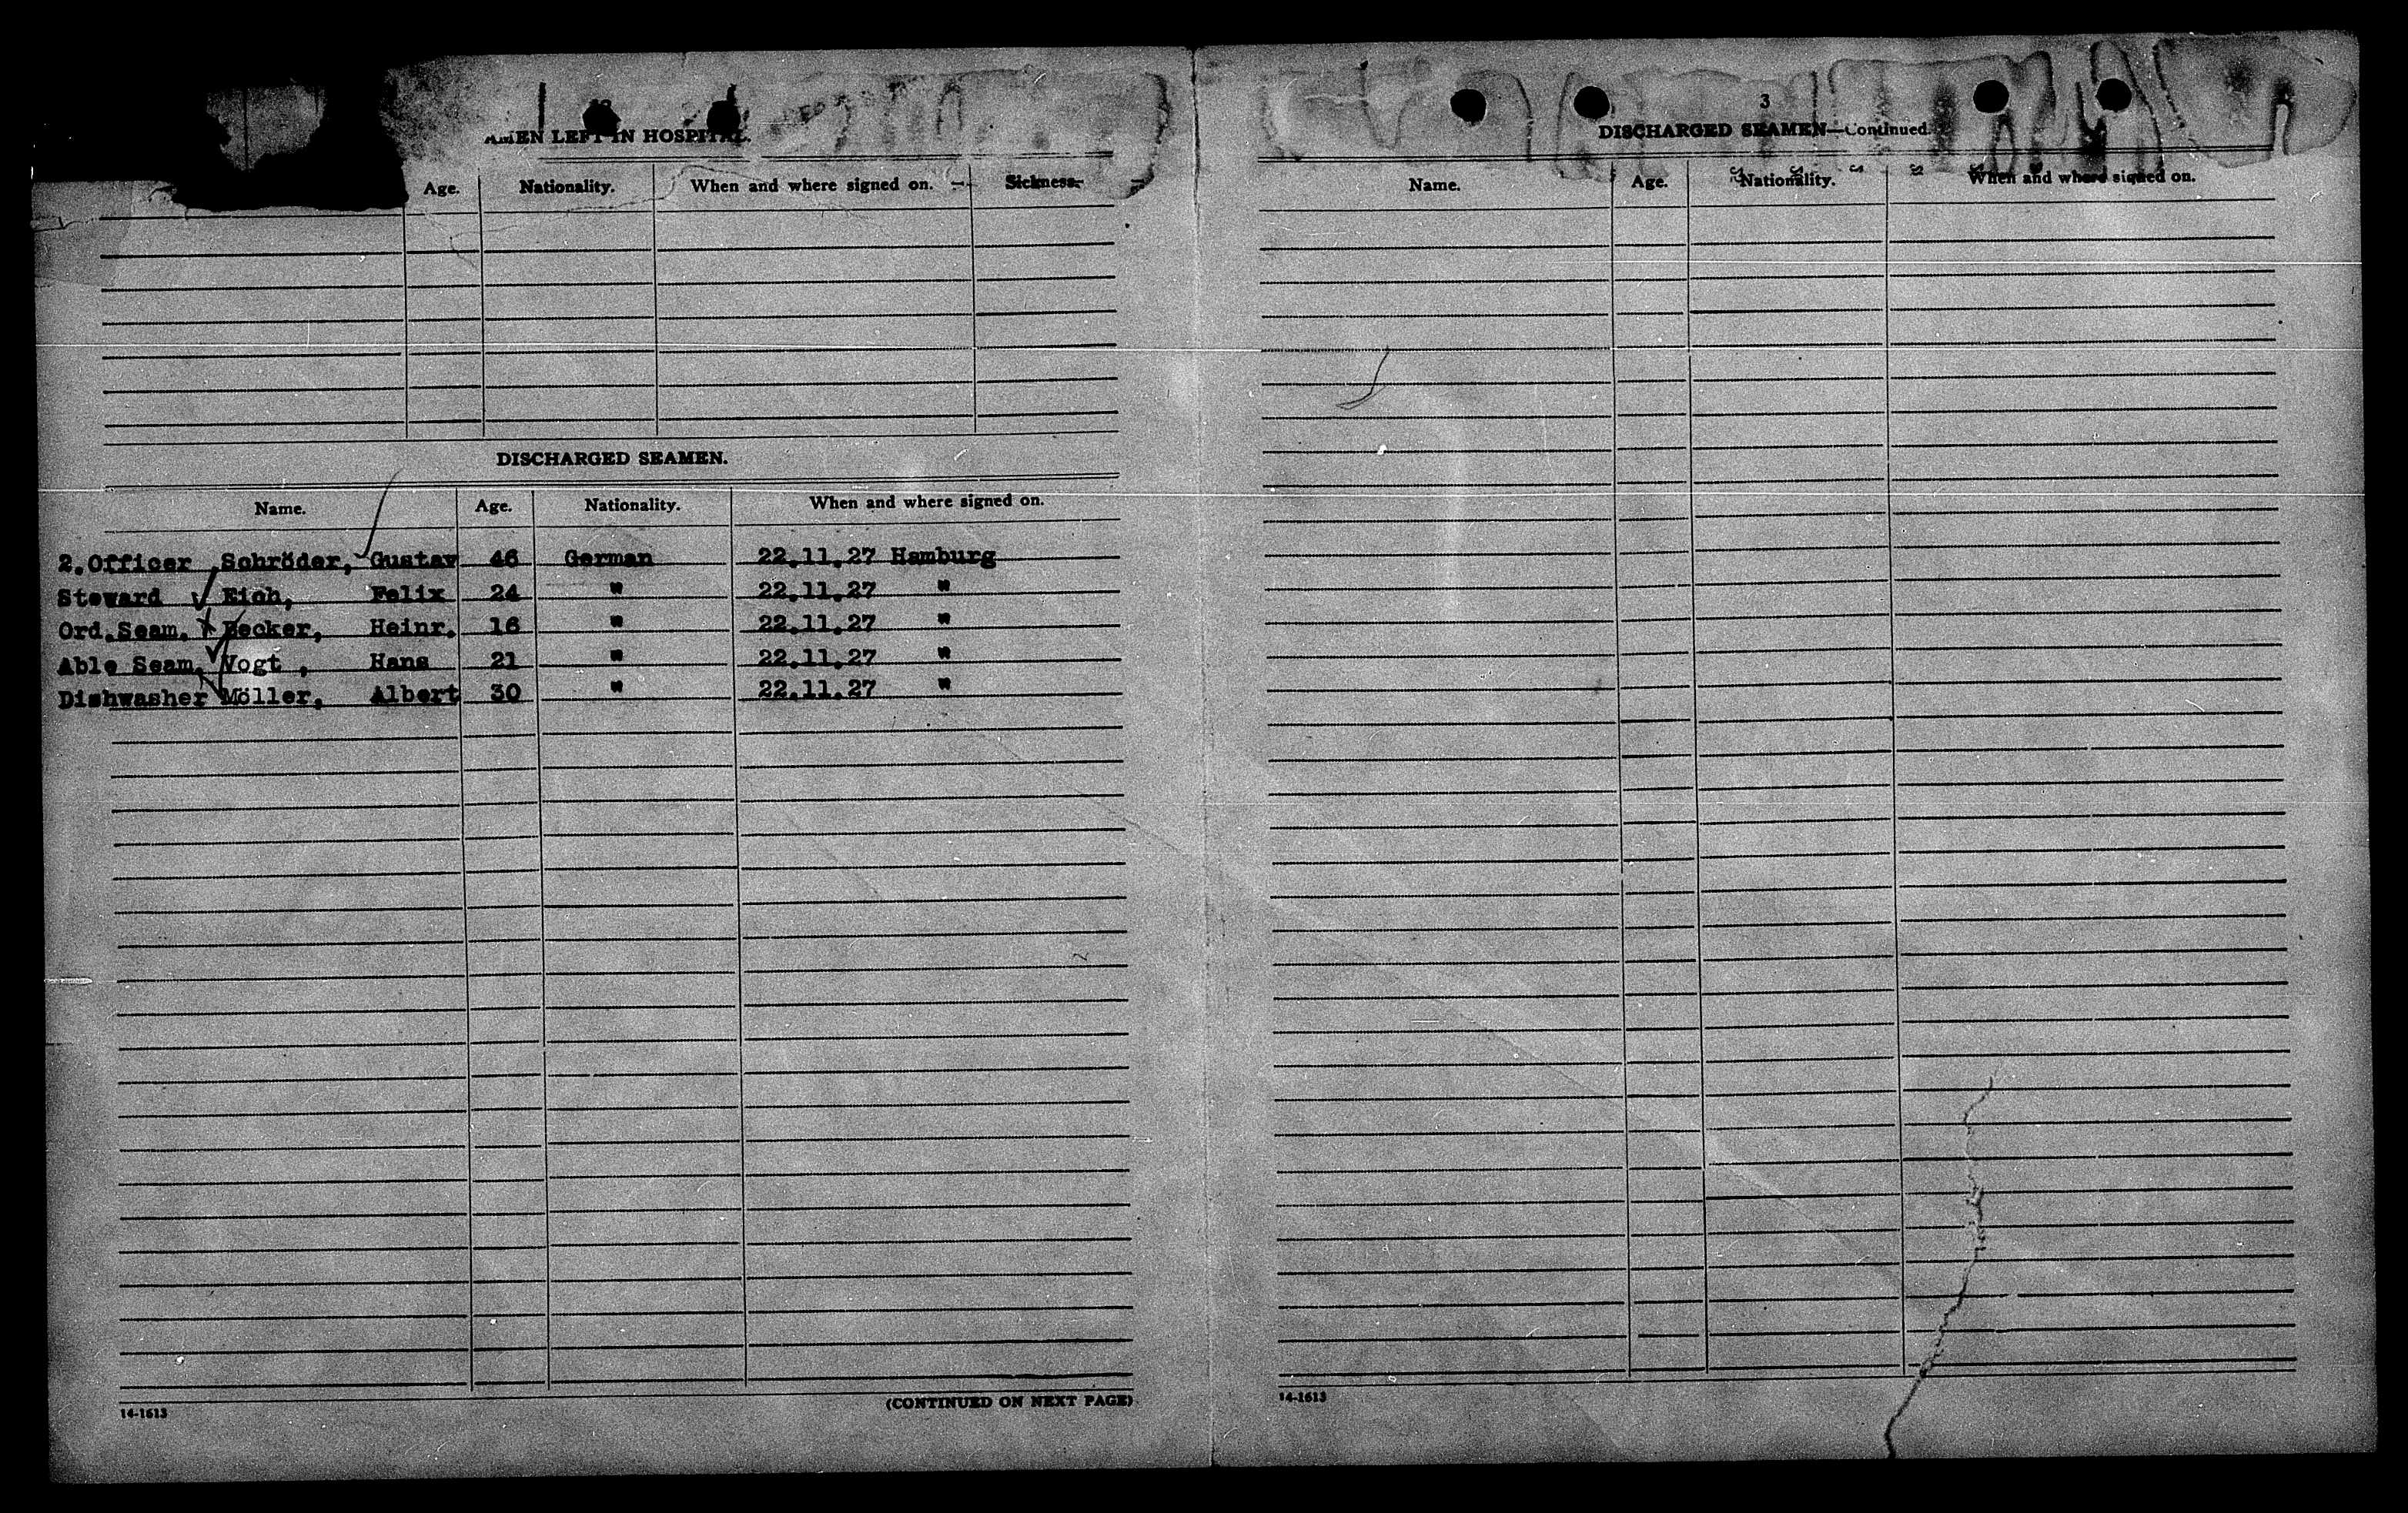 MEN LEFT IN HOSPITAL.
Age. Nationality. When and where signed on. Sickness.
DISCHARGED SEAMEN.
Name. Age. Nationality. When and where signed on.
2.Officer Schröder, Gustav 46 German 22.11.27 Hamburg
Steward Eich, Felix 24 " 22.11.27 "
Ord.Seam. Becker, Heinr. 16 " 22.11.27 "
Able Seam. Vogt , Hans 21 " 22.11.27 "
Dishwasher Möller, Albert 30 " 22.11.27 "
(CONTINUED ON NEXT PAGE)
14-1613
3
DISCHARGED SEAMEN—Continued.
Name. Age. Nationality. When and where signed on.
14-1613